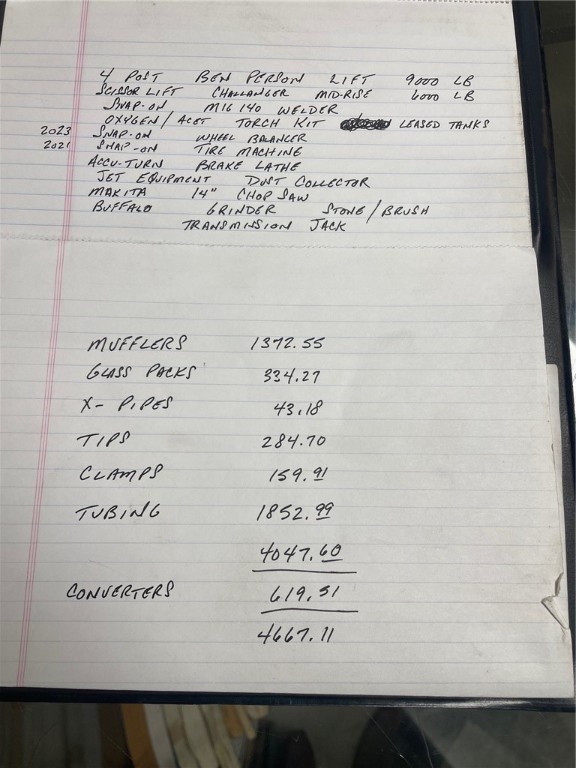 4 POST BEN PERSON LIFT 9000 LB
SCISSOR LIFT CHALLANGER MID-RISE 6000 LB
SNAP-ON MIG 140 WELDER
OXYGEN/ACET TORCH KIT LEASED TANKS
2023 SNAP-ON WHEEL BALANCER
2021 SNAP-ON TIRE MACHINE
ACCU-TURN BRAKE LATHE
JET EQUIPMENT DUST COLLECTOR
MAKITA 14" CHOP SAW
BUFFALO GRINDER STONE/BRUSH
TRANSMISSION JACK
MUFFLERS 1372.55
GLASS PACKS 334.27
X-PIPES 43.18
TIPS 284.70
CLAMPS 159.91
TUBING 1852.99
4047.60
CONVERTERS 619.51
4667.11